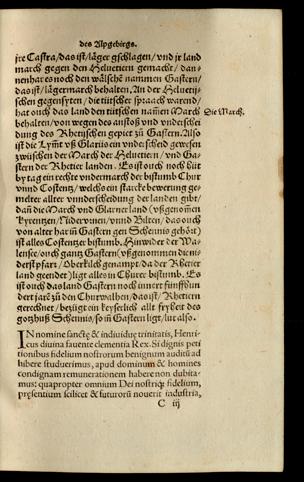 des Alpgebirgs.
jre Castra/das ist/läger gschlagen/vnd jr land
march gegen den Heluetiern gemacht/ dan-
nenhar es noch den wälschē nammen Gastern/
das ist/ lägermarch behalten. An der Heluetij-
schen gegensyten/ die tütscher spraach warend/
hat ouch das land den tütschen namē March
Die March.
behalten/ von wegen des anstoß vnd vnderschei
dung des Rhetischen gepiet zů Gastern. Also
ist die Lym̃t vß Glariß ein vnderscheid gewesen
zwüschen der March der Heluetiern / vnd Ga-
stern der Rhetier landen. Es ist ouch noch hüt
by tag ein rechte vndermarch der bistumb Chur
vnnd Costentz/ welchs ein starcke bewerung ge-
melter allter vnnderscheidung der landen gibt/
dañ die March vnd Glarner land (vßgenom̃en
Kyrentzen/ Niderurnen/ vnnd Bilten/ das ouch
von alter har in Gastern gen Schennis gehört)
ist alles Costentzer bistumb. Hinwider der Wa-
lensee/ ouch gantz Gastern (vßgenommen die ni-
derst pfarr/ Oberkilch genampt/ da der Rhetier
land geendet) ligt alles in Churer bistumb. Es
ist ouch das land Gastern noch innert fünffhun
dert jarē zů den Churwalhen/ das ist/ Rhetiern
gerechnet/ bezügt ein keyserlich allt fryheit des
gotzhuß Schennis/ so in Gastern ligt/ lut also.
IN nomine sanctę & indiuiduę trinitatis, Henri-
cus diuina fauente clementia Rex. Si dignis peti
tionibus fidelium nostrorum benignum auditū ad
hibere studuerimus, apud dominum & homines
condignam remunerationem habere non dubita-
mus: quapropter omnium Dei nostriq́; fidelium,
pręsentium scilicet & futurorū nouerit industria,
C iij